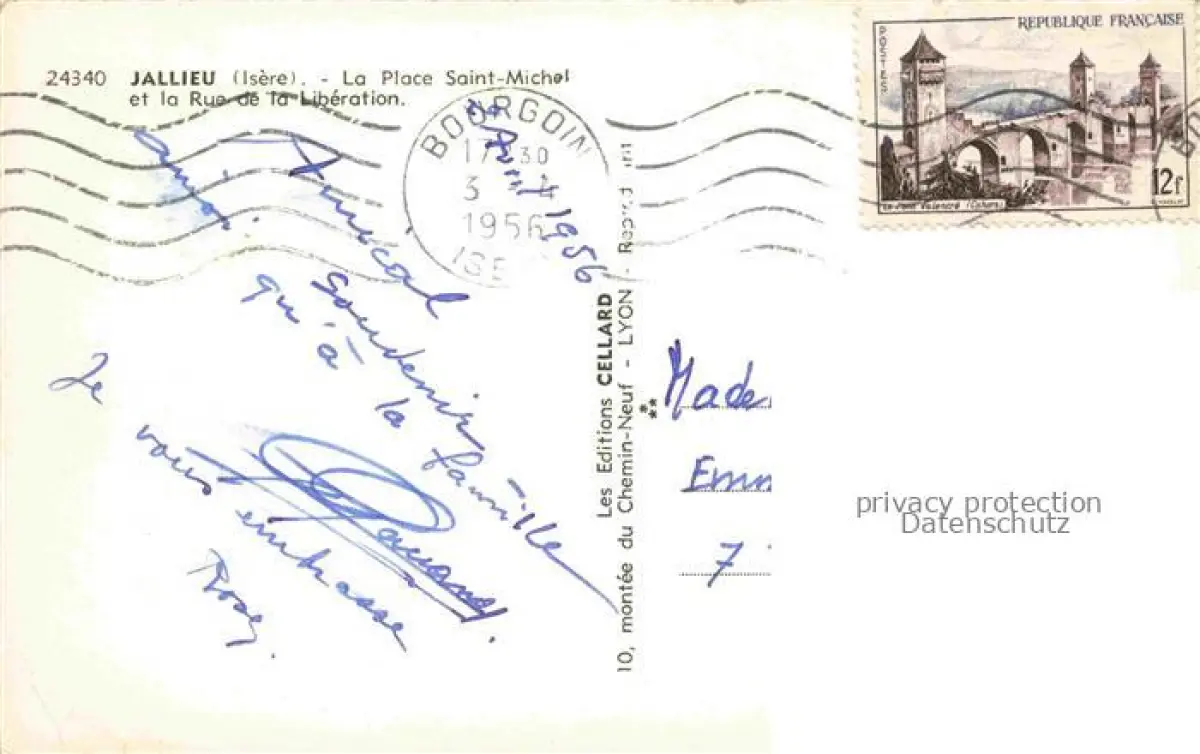 24340 JALLIEU (Isère). - La Place Saint-Michel
et la Rue de la Libération.
BOURGOIN
17 30
3 - 4
1956
ISE
REPUBLIQUE FRANÇAISE
POSTES
Le Pont Valentré (Cahors)
12f
Avril 1956
Amical
souvenir
qu'à
la famille
Je
vous embrasse
Rose
Les Editions CELLARD
10, montée du Chemin-Neuf - LYON - Reprod int
Made
Emm
7
privacy protection
Datenschutz